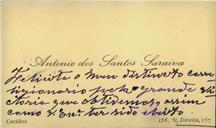 Antonio dos Santos Saraiva
Felicito o meu distincto corre
ligionario pela grande vi
ctoria que obtidemos, assim
como V. Exª ter sido eleito.
Cacilhas
156, R. Direita, 157